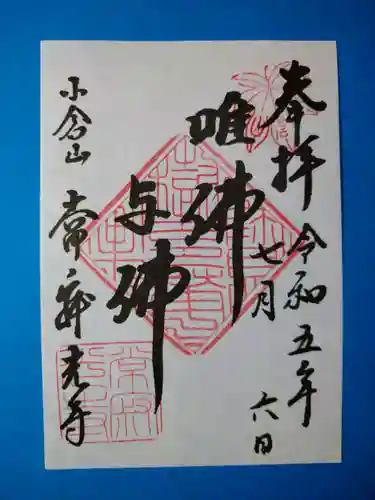 奉拝
令和五年
七月
六日
唯佛
与佛
小倉山
常寂光寺